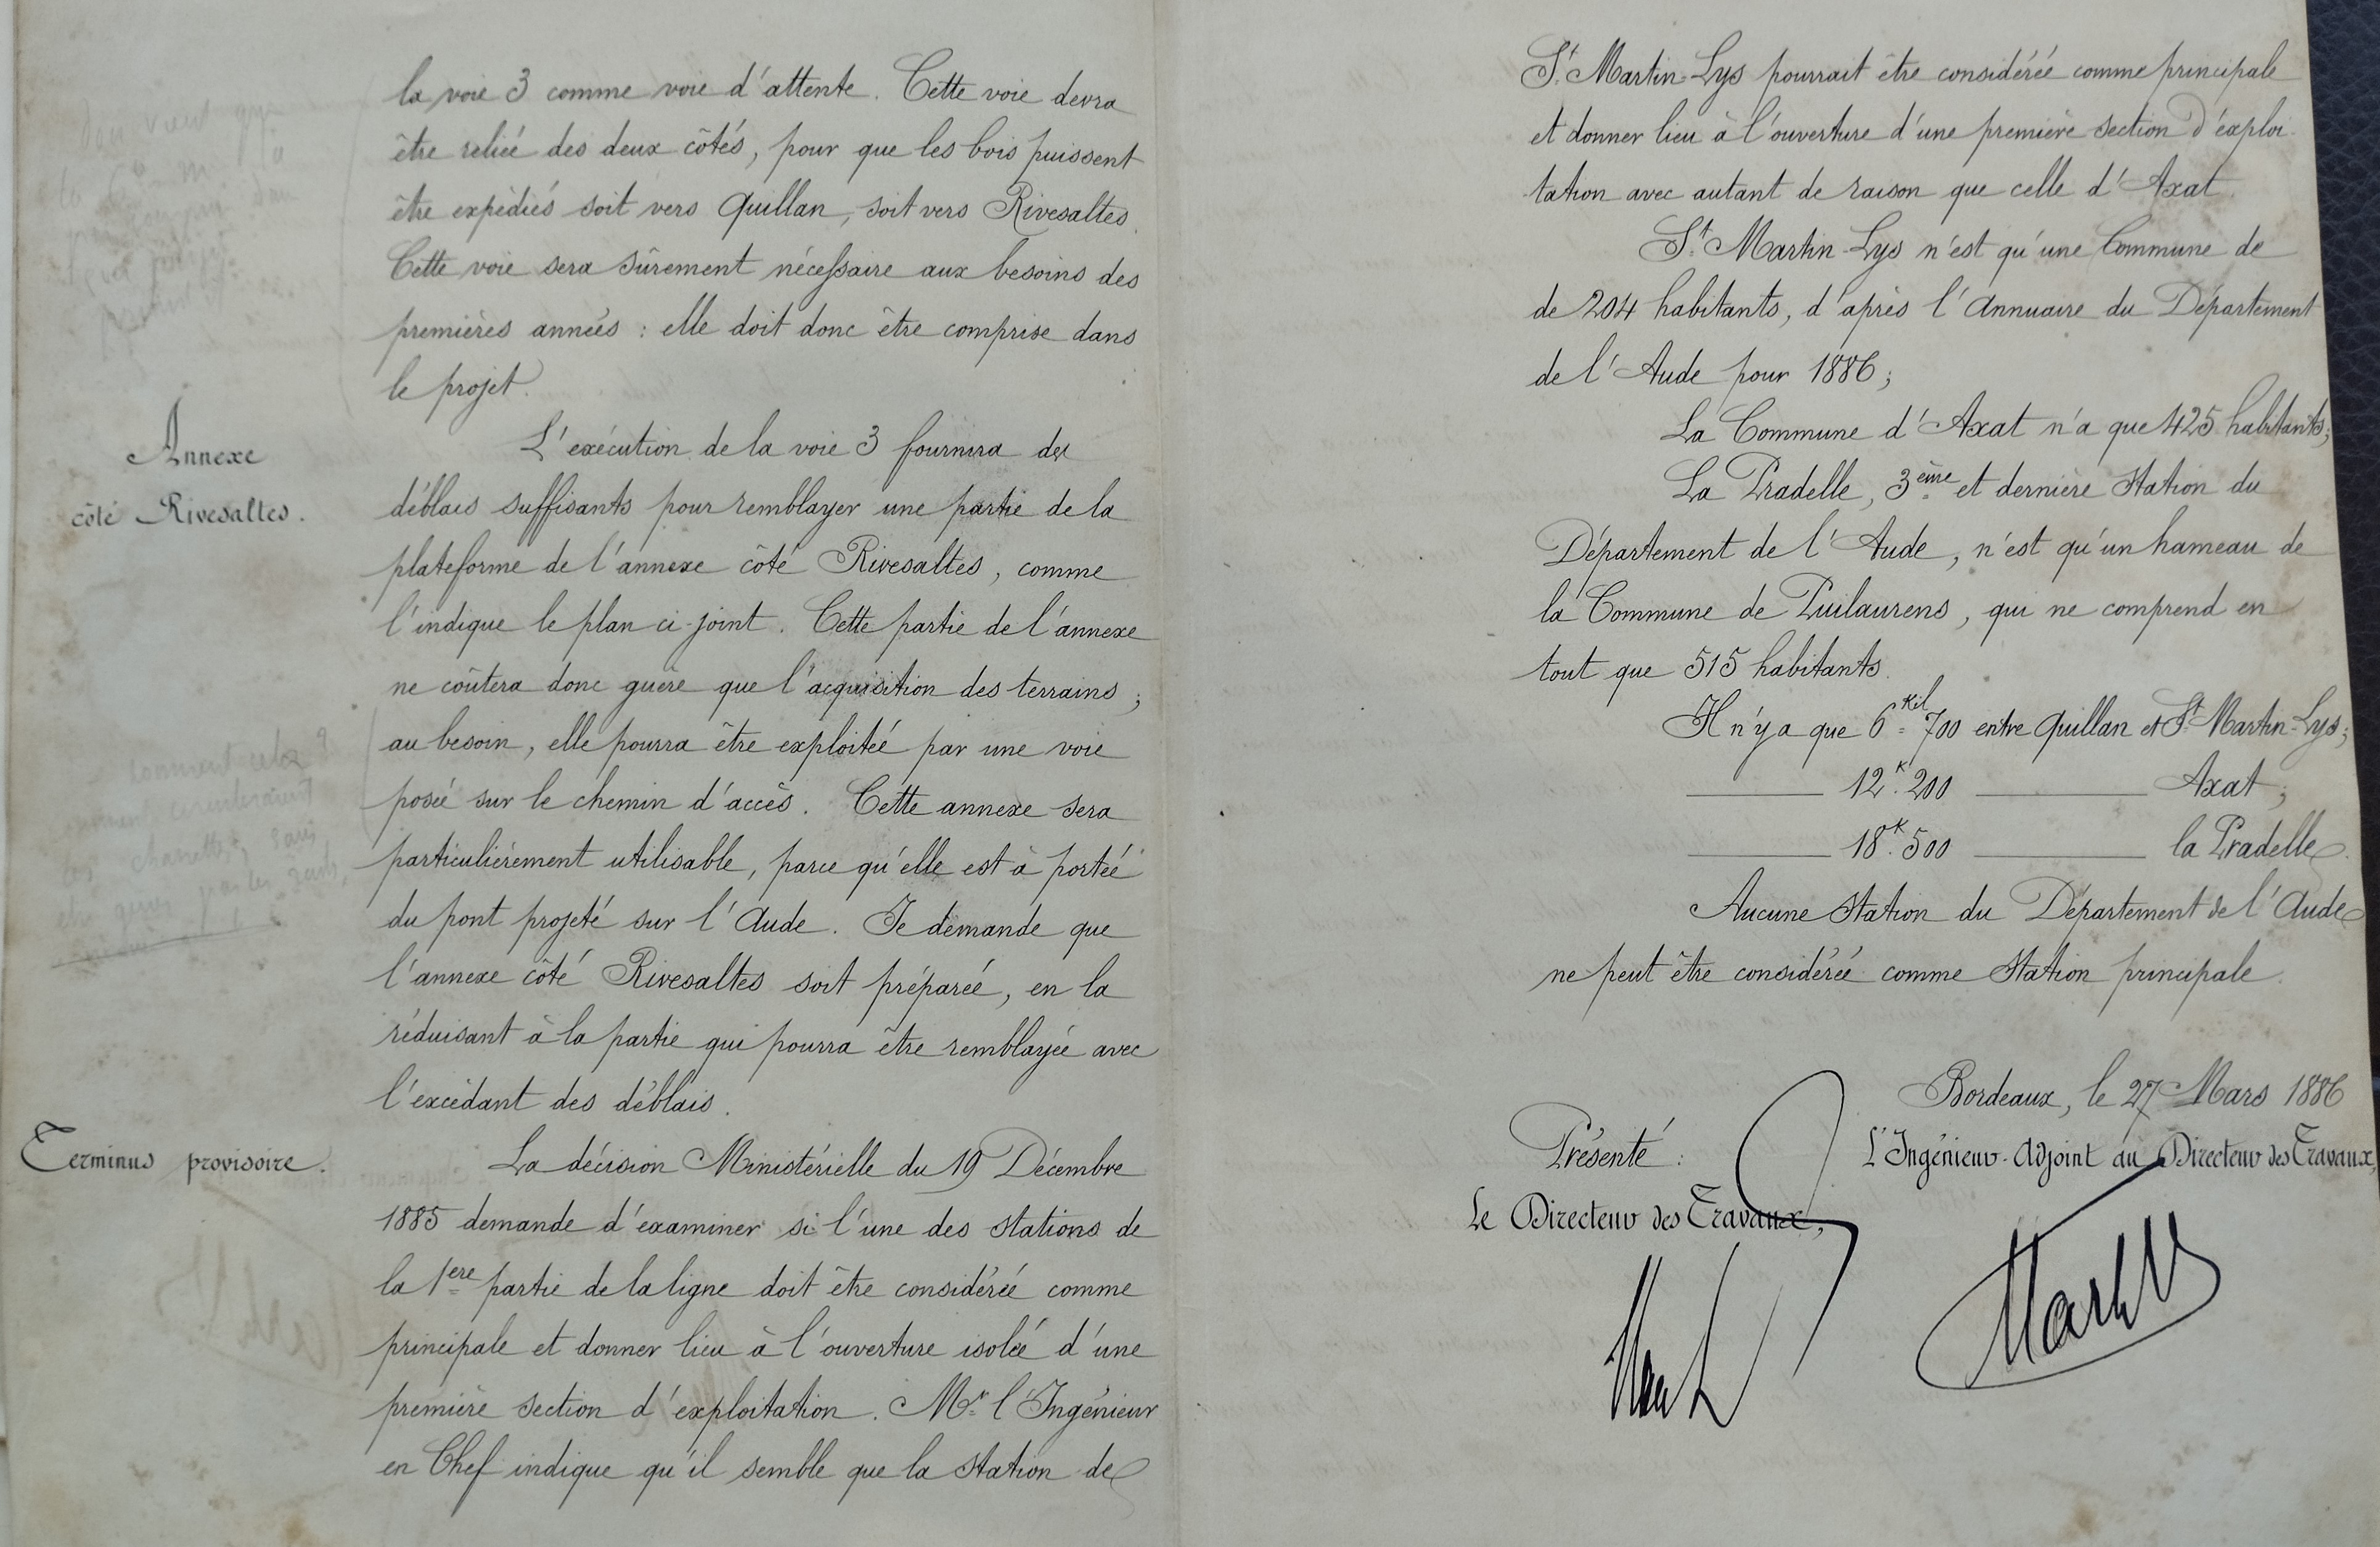 la voie 3 comme voie d'attente. Cette voie devra
être reliée des deux côtés, pour que les bois puissent
être expédiés soit vers Quillan, soit vers Rivesaltes.
Cette voie sera sûrement nécessaire aux besoins des
premières années : elle doit donc être comprise dans
le projet.
Annexe
côté Rivesaltes.
L'exécution de la voie 3 fournira des
déblais suffisants pour remblayer une partie de la
plateforme de l'annexe côté Rivesaltes, comme
l'indique le plan ci-joint. Cette partie de l'annexe
ne coûtera donc guère que l'acquisition des terrains ;
au besoin, elle pourra être exploitée par une voie
posée sur le chemin d'accès. Cette annexe sera
particulièrement utilisable, parce qu'elle est à portée
du pont projeté sur l'Aude. Je demande que
l'annexe côté Rivesaltes soit préparée, en la
réduisant à la partie qui pourra être remblayée avec
l'excédant des déblais.
comment cela ?
les charrettes, sans
Terminus provisoire.
La décision Ministérielle du 19 Décembre
1885 demande d'examiner si l'une des stations de
la 1ère partie de la ligne doit être considérée comme
principale et donner lieu à l'ouverture isolée d'une
première section d'exploitation. Mr l'Ingénieur
en Chef indique qu'il semble que la station de
St Martin-Lys pourrait être considérée comme principale
et donner lieu à l'ouverture d'une première section d'exploi-
tation avec autant de raison que celle d'Axat.
St Martin-Lys n'est qu'une Commune de
de 204 habitants, d'après l'Annuaire du Département
de l'Aude pour 1886 ;
La Commune d'Axat n'a que 425 habitants ;
La Pradelle, 3ème et dernière Station du
Département de l'Aude, n'est qu'un hameau de
la Commune de Puilaurens, qui ne comprend en
tout que 515 habitants.
Il n'y a que 6 Kil 700 entre Quillan et St Martin-Lys ;
12 K. 200 Axat ;
18 K. 500 la Pradelle.
Aucune Station du Département de l'Aude
ne peut être considérée comme Station principale.
Bordeaux, le 27 Mars 1886
L'Ingénieur-Adjoint au Directeur des Travaux,
Présenté :
Le Directeur des Travaux,